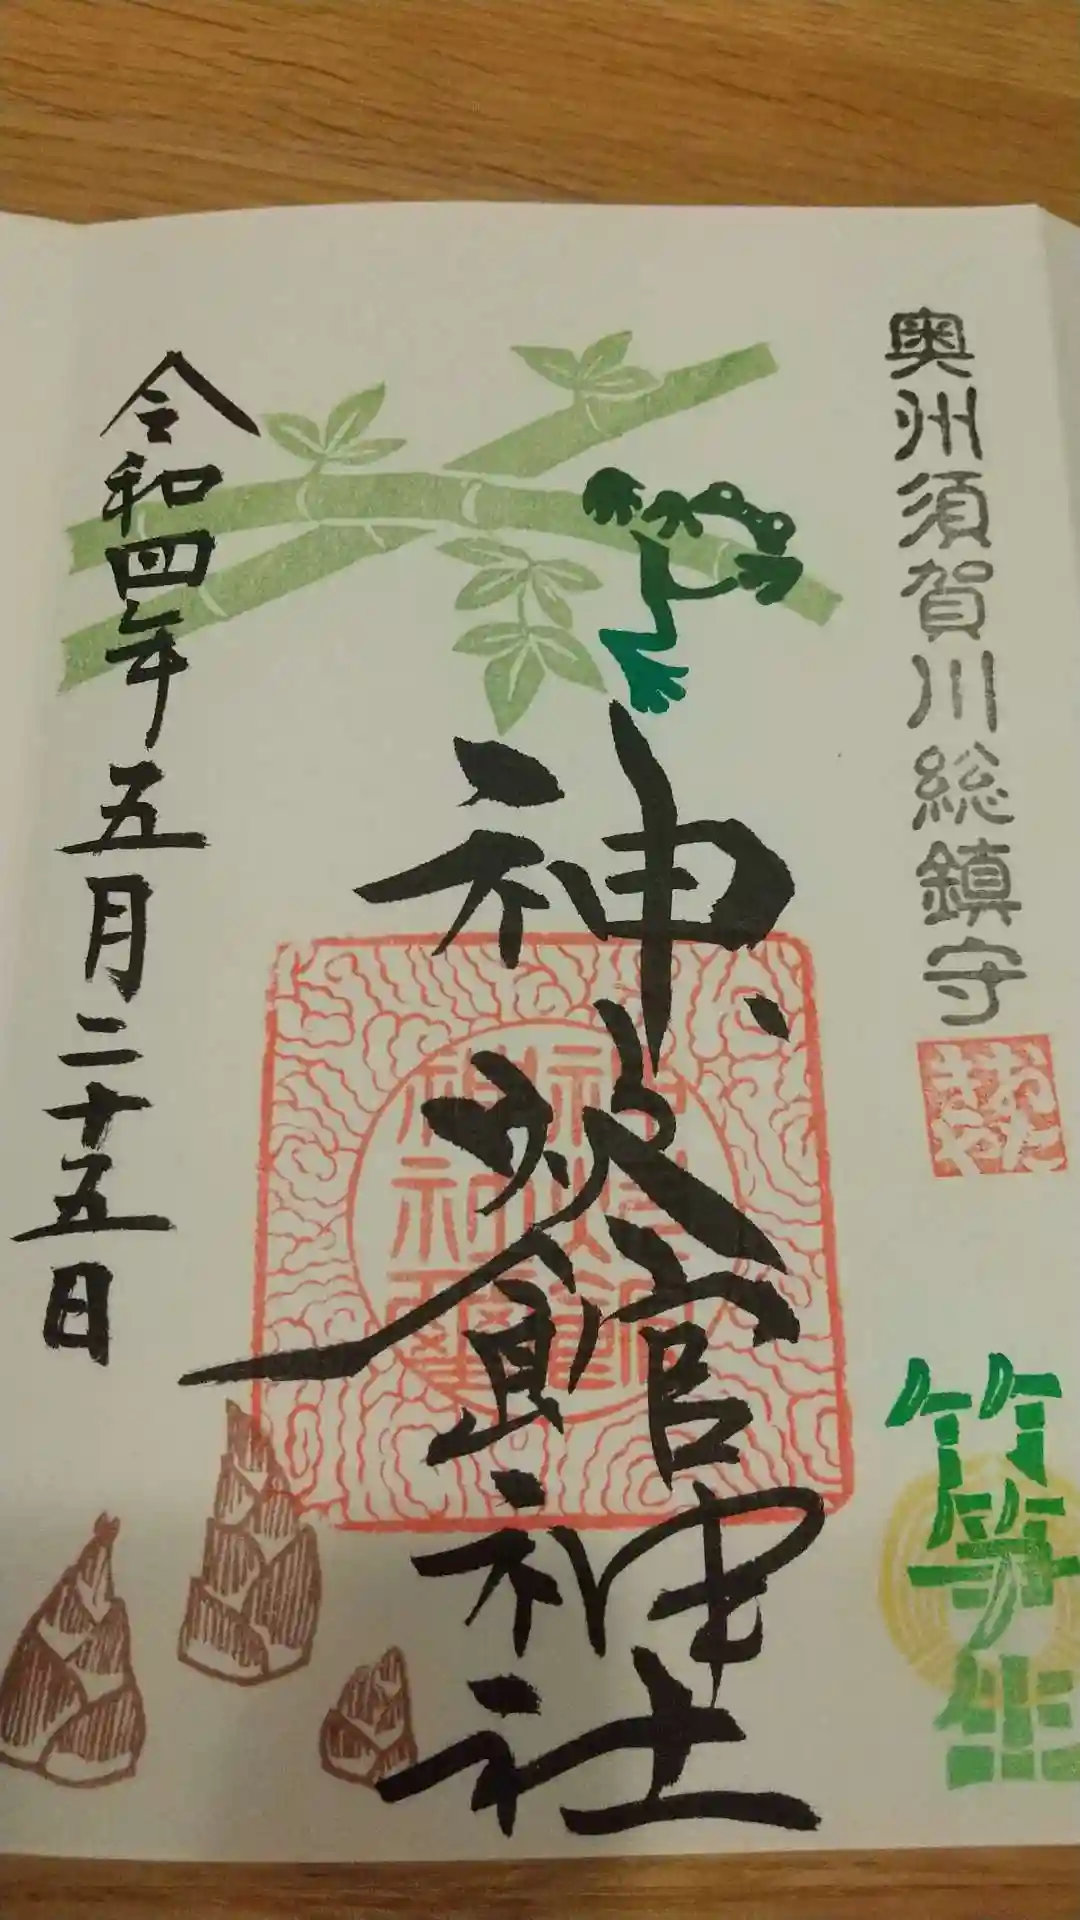 奥州須賀川総鎮守
おたきや
竹笋生
神炊館神社
令和四年五月二十五日